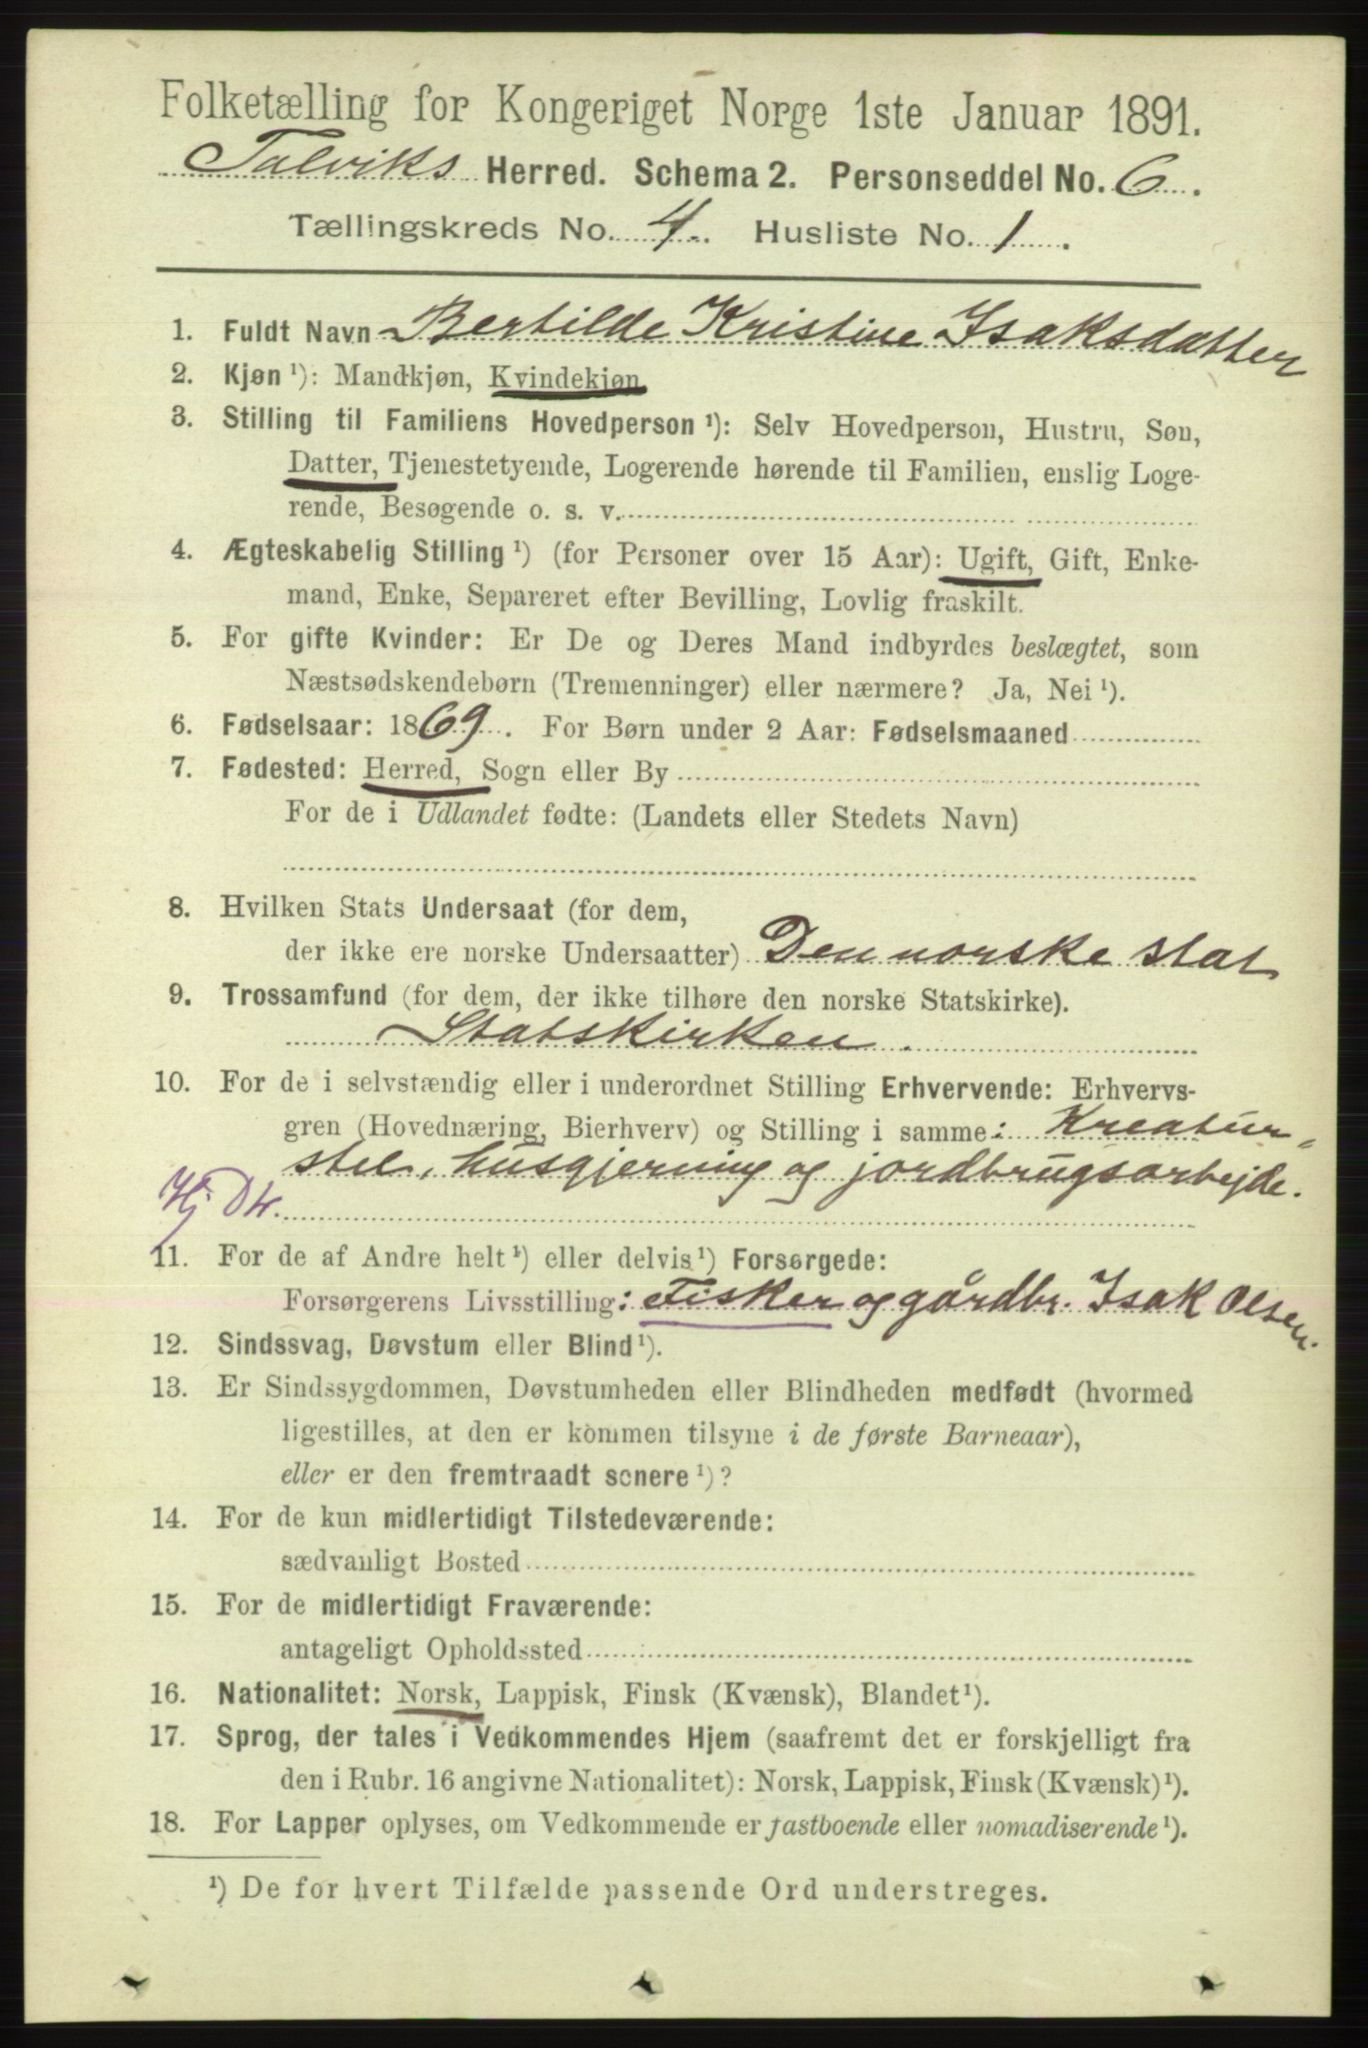 Folketælling for Kongeriget Norge 1ste Januar 1891.
Talviks Herred. Schema 2. Personseddel No. 6.
Tællingskreds No. 4. Husliste No. 1.
1. Fuldt Navn Bertilde Kristine Isaksdatter
2. Kjøn ¹): Mandkjøn, Kvindekjøn
3. Stilling til Familiens Hovedperson ¹): Selv Hovedperson, Hustru, Søn,
Datter, Tjenestetyende, Logerende hørende til Familien, enslig Loge-
rende, Besøgende o. s. v.
4. Ægteskabelig Stilling ¹) (for Personer over 15 Aar): Ugift, Gift, Enke-
mand, Enke, Separeret efter Bevilling, Lovlig fraskilt.
5. For gifte Kvinder: Er De og Deres Mand indbyrdes beslægtet, som
Næstsødskendebørn (Tremenninger) eller nærmere? Ja, Nei ¹).
6. Fødselsaar: 1869. For Børn under 2 Aar: Fødselsmaaned
7. Fødested: Herred, Sogn eller By
For de i Udlandet fødte: (Landets eller Stedets Navn)
8. Hvilken Stats Undersaat (for dem,
der ikke ere norske Undersaatter) Den norske stat
9. Trossamfund (for dem, der ikke tilhøre den norske Statskirke).
Statskirken.
10. For de i selvstændig eller i underordnet Stilling Erhvervende: Erhvervs-
gren (Hovednæring, Bierhverv) og Stilling i samme: Kreatur-
stel, husgjerning og jordbrugsarbejde.
Hj Dtr.
11. For de af Andre helt ¹) eller delvis ¹) Forsørgede:
Forsørgerens Livsstilling: Fisker og gårdbr. Isak Olsen.
12. Sindssvag, Døvstum eller Blind ¹).
13. Er Sindssygdommen, Døvstumheden eller Blindheden medfødt (hvormed
ligestilles, at den er kommen tilsyne i de første Barneaar),
eller er den fremtraadt senere ¹)?
14. For de kun midlertidigt Tilstedeværende:
sædvanligt Bosted
15. For de midlertidigt Fraværende:
antageligt Opholdssted
16. Nationalitet: Norsk, Lappisk, Finsk (Kvænsk), Blandet ¹).
17. Sprog, der tales i Vedkommendes Hjem (saafremt det er forskjelligt fra
den i Rubr. 16 angivne Nationalitet): Norsk, Lappisk, Finsk (Kvænsk) ¹).
18. For Lapper oplyses, om Vedkommende er fastboende eller nomadiserende ¹).
¹) De for hvert Tilfælde passende Ord understreges.